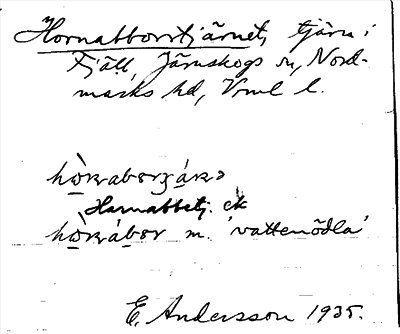 Hornabborrtjärnet, tjärn i
Fjäll, Järnskogs sn, Nord-
marks hd, Vrml l.
Hornabbetj. ek
m. 'vattenödla'
E. Andersson 1935.